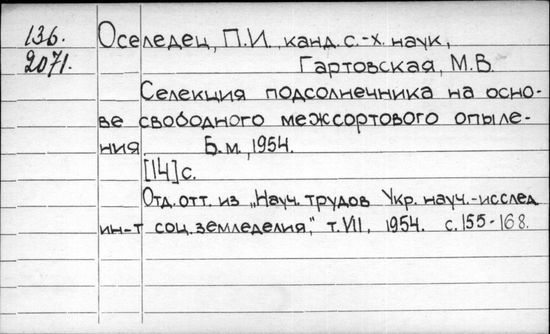 136.
2071.
Оселедец, П.И. канд. с.-х. наук,
Гартовская, М.В.
Селекция подсолнечника на осно-
ве свободного межсортового опыле-
ния. Б.м., 1954.
[14] с.
Отд. отт. из „Науч. трудов Укр. науч.-исслед
ин-т соц. земледелия", т. VII, 1954. с. 155-168.